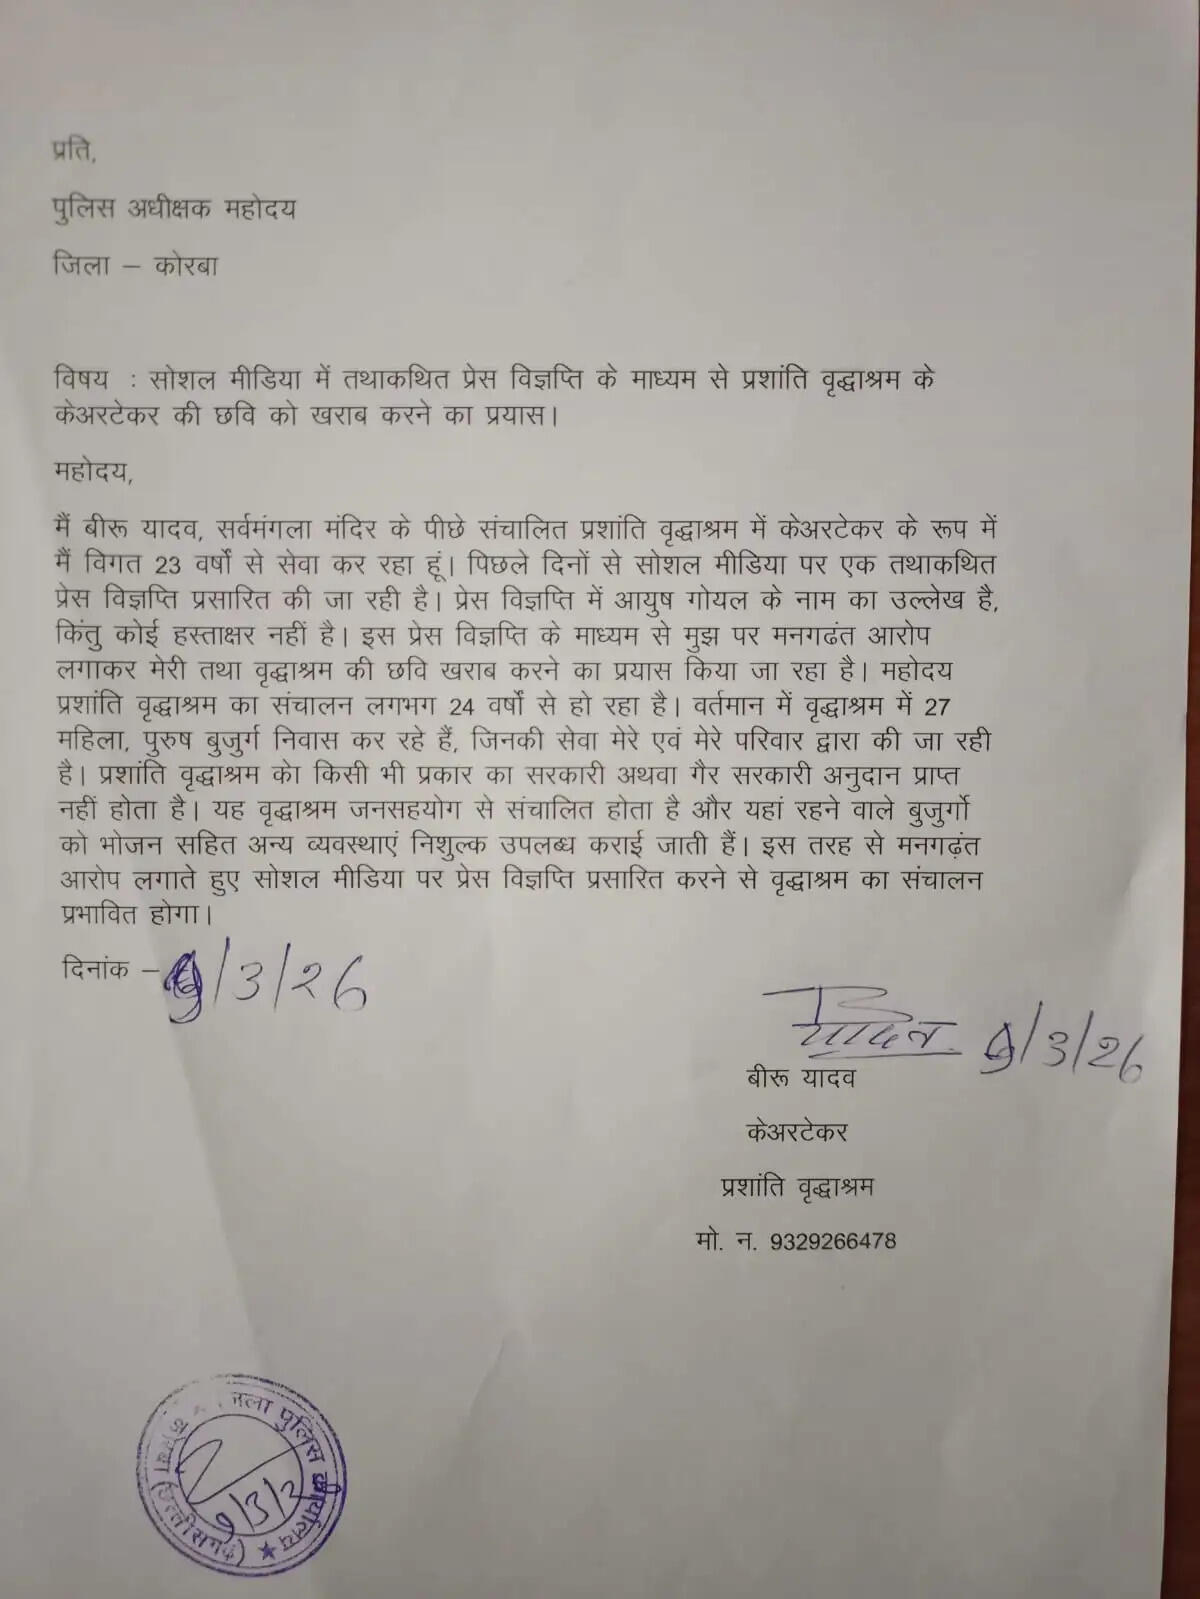 प्रति,
पुलिस अधीक्षक महोदय
जिला – कोरबा
विषय : सोशल मीडिया में तथाकथित प्रेस विज्ञप्ति के माध्यम से प्रशांति वृद्धाश्रम के
केअरटेकर की छवि को खराब करने का प्रयास।
महोदय,
मैं बीरू यादव, सर्वमंगला मंदिर के पीछे संचालित प्रशांति वृद्धाश्रम में केअरटेकर के रूप में
मैं विगत 23 वर्षों से सेवा कर रहा हूं। पिछले दिनों से सोशल मीडिया पर एक तथाकथित
प्रेस विज्ञप्ति प्रसारित की जा रही है। प्रेस विज्ञप्ति में आयुष गोयल के नाम का उल्लेख है,
किंतु कोई हस्ताक्षर नहीं है। इस प्रेस विज्ञप्ति के माध्यम से मुझ पर मनगढंत आरोप
लगाकर मेरी तथा वृद्धाश्रम की छवि खराब करने का प्रयास किया जा रहा है। महोदय
प्रशांति वृद्धाश्रम का संचालन लगभग 24 वर्षों से हो रहा है। वर्तमान में वृद्धाश्रम में 27
महिला, पुरुष बुजुर्ग निवास कर रहे हैं, जिनकी सेवा मेरे एवं मेरे परिवार द्वारा की जा रही
है। प्रशांति वृद्धाश्रम केा किसी भी प्रकार का सरकारी अथवा गैर सरकारी अनुदान प्राप्त
नहीं होता है। यह वृद्धाश्रम जनसहयोग से संचालित होता है और यहां रहने वाले बुजुर्गो
को भोजन सहित अन्य व्यवस्थाएं निशुल्क उपलब्ध कराई जाती हैं। इस तरह से मनगढ़ंत
आरोप लगाते हुए सोशल मीडिया पर प्रेस विज्ञप्ति प्रसारित करने से वृद्धाश्रम का संचालन
प्रभावित होगा।
दिनांक – 9/3/26
यादव 9/3/26
बीरू यादव
केअरटेकर
प्रशांति वृद्धाश्रम
मो. न. 9329266478
जिला पुलिस कार्यालय
कोरबा (छत्तीसगढ़)
9/3/2